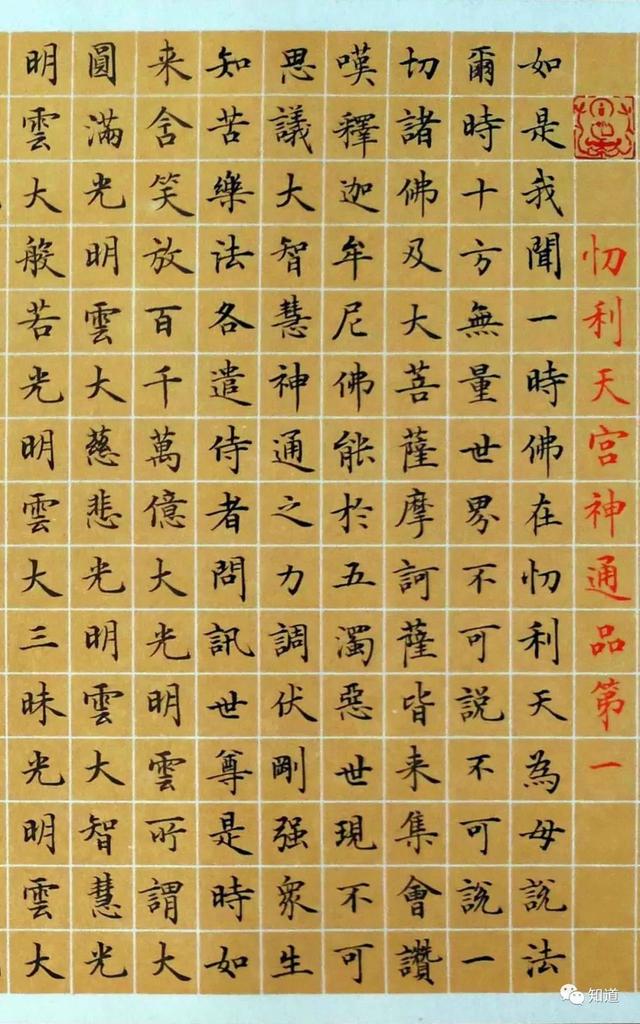 忉利天宫神通品第一
如是我聞一時佛在忉利天為母説法
爾時十方無量世界不可説不可説一
切諸佛及大菩薩摩訶薩皆来集會讚
嘆釋迦牟尼佛能於五濁惡世現不可
思議大智慧神通之力調伏剛强衆生
知苦樂法各遣侍者問訊世尊是時如
来含笑放百千萬億大光明雲所謂大
圓滿光明雲大慈悲光明雲大智慧光
明雲大般若光明雲大三昧光明雲大
知道